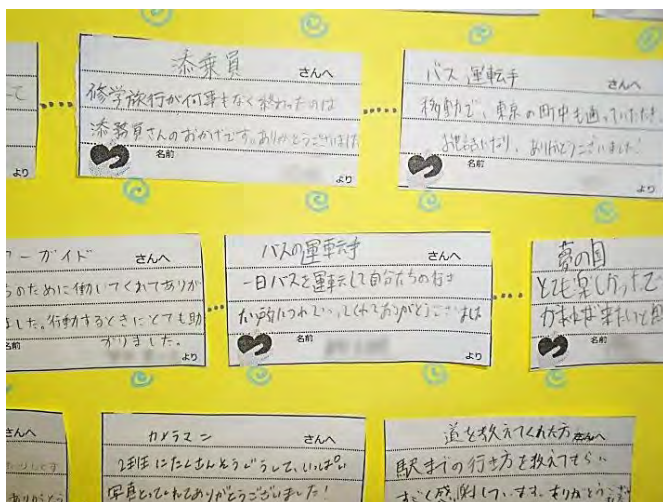 て
より
添乗員 さんへ
修学旅行が何事もなく終わったのは
添務員さんのおかげです。ありがとうございました
名前
より
バス運転手 さんへ
移動で、東京の町中も通っていただき、
お世話になり、ありがとうございました!
名前
より
ーガイド さんへ
ちのために働いてくれてありが
ました。行動するときにとても助
かりました。
名前
より
バスの運転手 さんへ
一日バスを運転して自分たちの行き
たい所につれていってくれてありがとうございました
名前
より
夢の国
とても楽しかったで
名前
さんへ
カメラマン さんへ
写真とってくれてありがとうございました!
道を教えてくれた方 さんへ
駅までの行き方を教えてもらい
すごく感謝しています。ありがとうござ